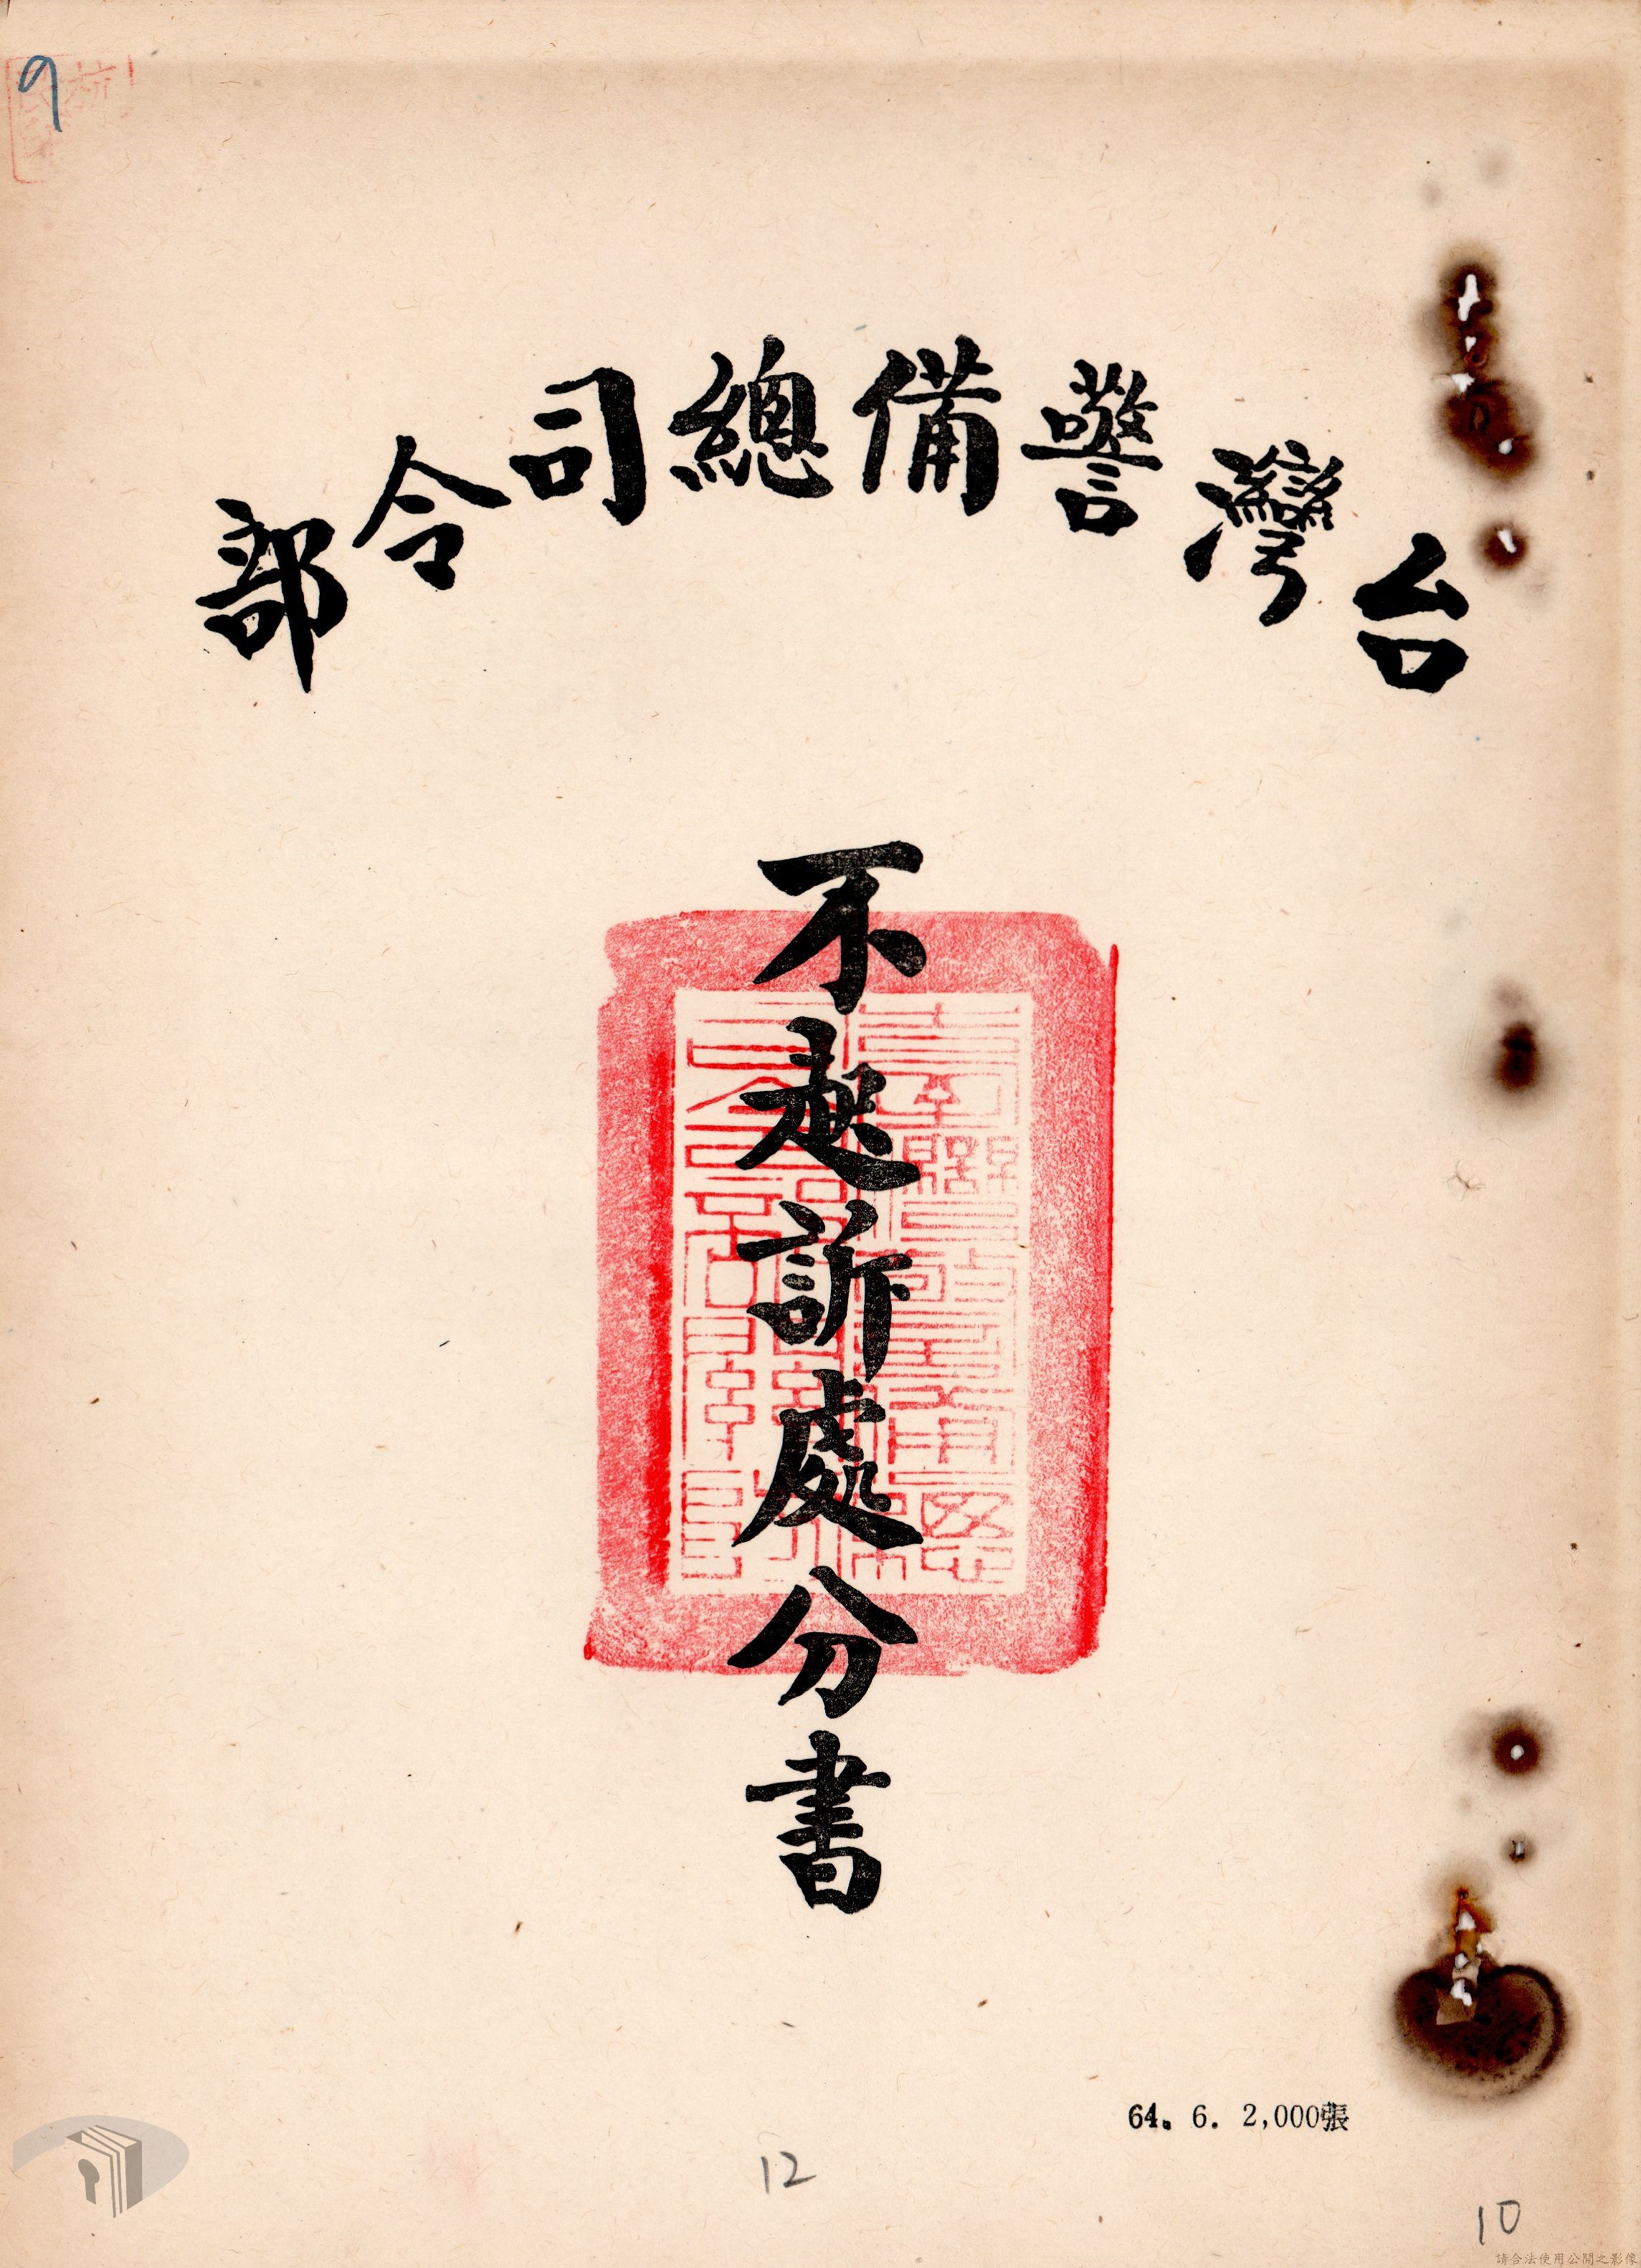 9
台灣警備總司令部
不起訴處分書
64. 6. 2,000張
12
10
請合法使用公開之影像